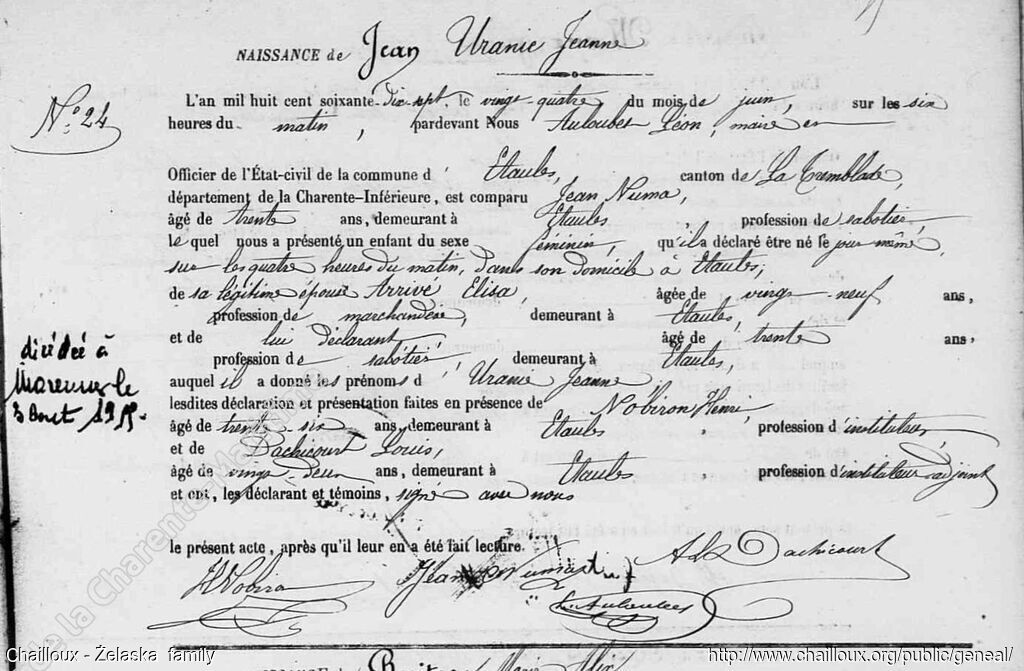 NAISSANCE de Jean Uranie Jeanne
N° 24
L'an mil huit cent soixante-dix-sept, le vingt-quatre du mois de juin, sur les six
heures du matin, pardevant Nous Auloubet Léon, maire en
Officier de l'État-civil de la commune d'Etaules, canton de La Tremblade,
département de la Charente-Inférieure, est comparu Jean Numa,
âgé de trente ans, demeurant à Etaules, profession de sabotier,
lequel nous a présenté un enfant du sexe féminin, qu'il a déclaré être né le jour même,
sur les quatre heures du matin, dans son domicile à Etaules,
de sa légitime épouse Arrivé Elisa, âgée de vingt-neuf ans,
profession de marchandère, demeurant à Etaules,
et de lui déclarant âgé de trente ans,
profession de sabotier demeurant à Etaules,
auquel il a donné les prénoms d'Uranie Jeanne
lesdites déclaration et présentation faites en présence de Nobiron Henri
âgé de trente six ans, demeurant à Etaules, profession d'instituteur
et de Dachicourt Louis,
âgé de vingt-deux ans, demeurant à Etaules, profession d'instituteur adjoint
et ont, les déclarant et témoins, signé avec nous
le présent acte, après qu'il leur en a été fait lecture.
décédée à
Marennes le
3 Aout
Jean Numa
Dachicourt
de la Charente-Maritime
Chailloux - Żelaska family
http://www.chailloux.org/public/geneal/